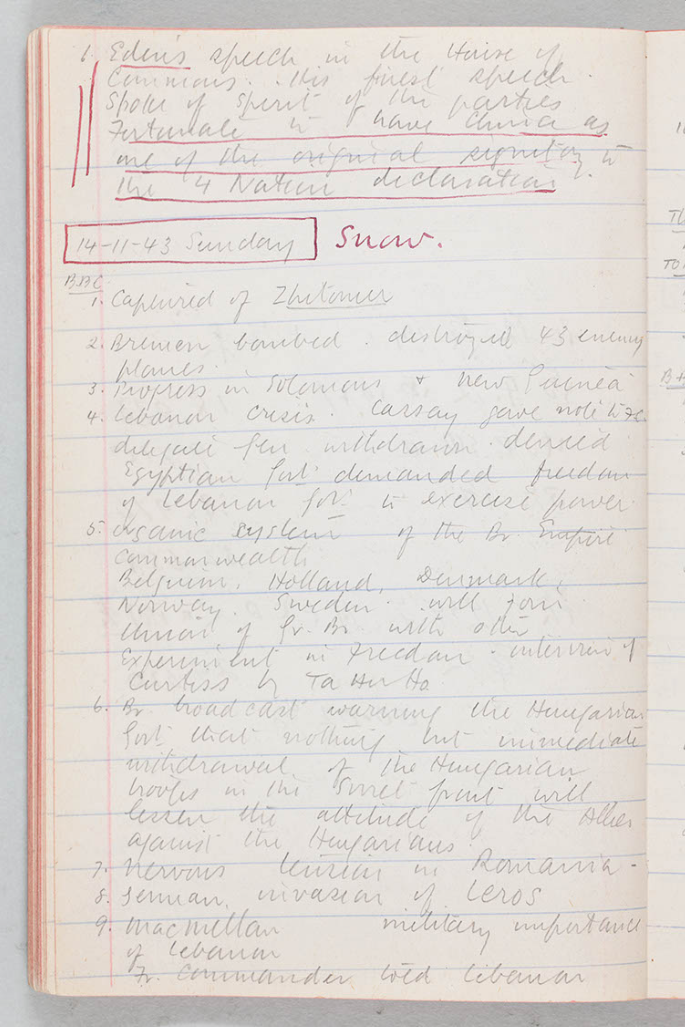 1. Eden's speech in the House of
Commons. His finest speech.
Spoke of spirit of the parties
Fortunate to have China as
one of the original signatory to
the 4 Nation declaration.
14-11-43 Sunday Snow.
BBC
1. Captured of Zhitomer
2. Bremen bombed. destroyed 43 enemy
planes.
3. Progress in Solomons & New Guinea
4. Lebanon crisis. Cassay gave note to Fr.
delegate Gen withdrawn. denied
Egyptian Govt demanded freedom
of Lebanon Govt. to exercise power.
5. organic system of the Br. Empire
commonwealth
Belgium, Holland, Denmark,
Norway. Sweden. will join
Union of Gr. Br. with other
Experiment in Freedom - interview of
Curtiss by Ta
6. Br broadcast warning the Hungarian
Govt that nothing but immediate
withdrawal of the Hungarian
troops in the Soviet front will
lessen the attitude of the Allies
against the Hungarians.
7. Nervous tension in Romania -
8. German invasion of Leros
9. MacMillan military importance
of Lebanon
Fr. Commander told Lebanon
TO
B